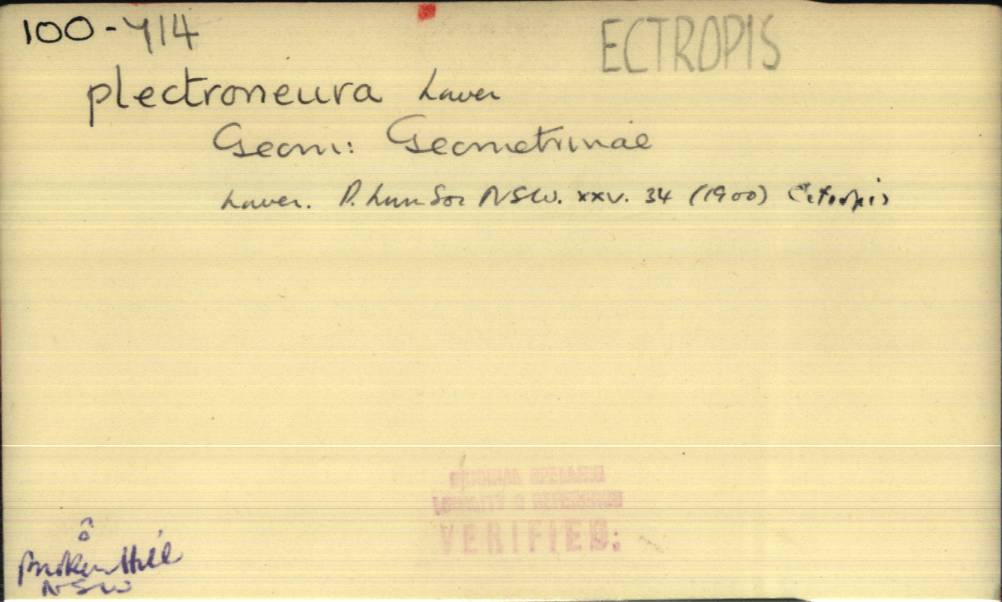 100-414
ECTROPIS
plectroneura Lower
Geom: Geometrinae
Lower. P. Linn Soc NSW. xxv. 34 (1900) Ectropis
ORIGINAL SPELLING
LOCALITY & REFERENCE
VERIFIED:
♂
Broken Hill
NSW